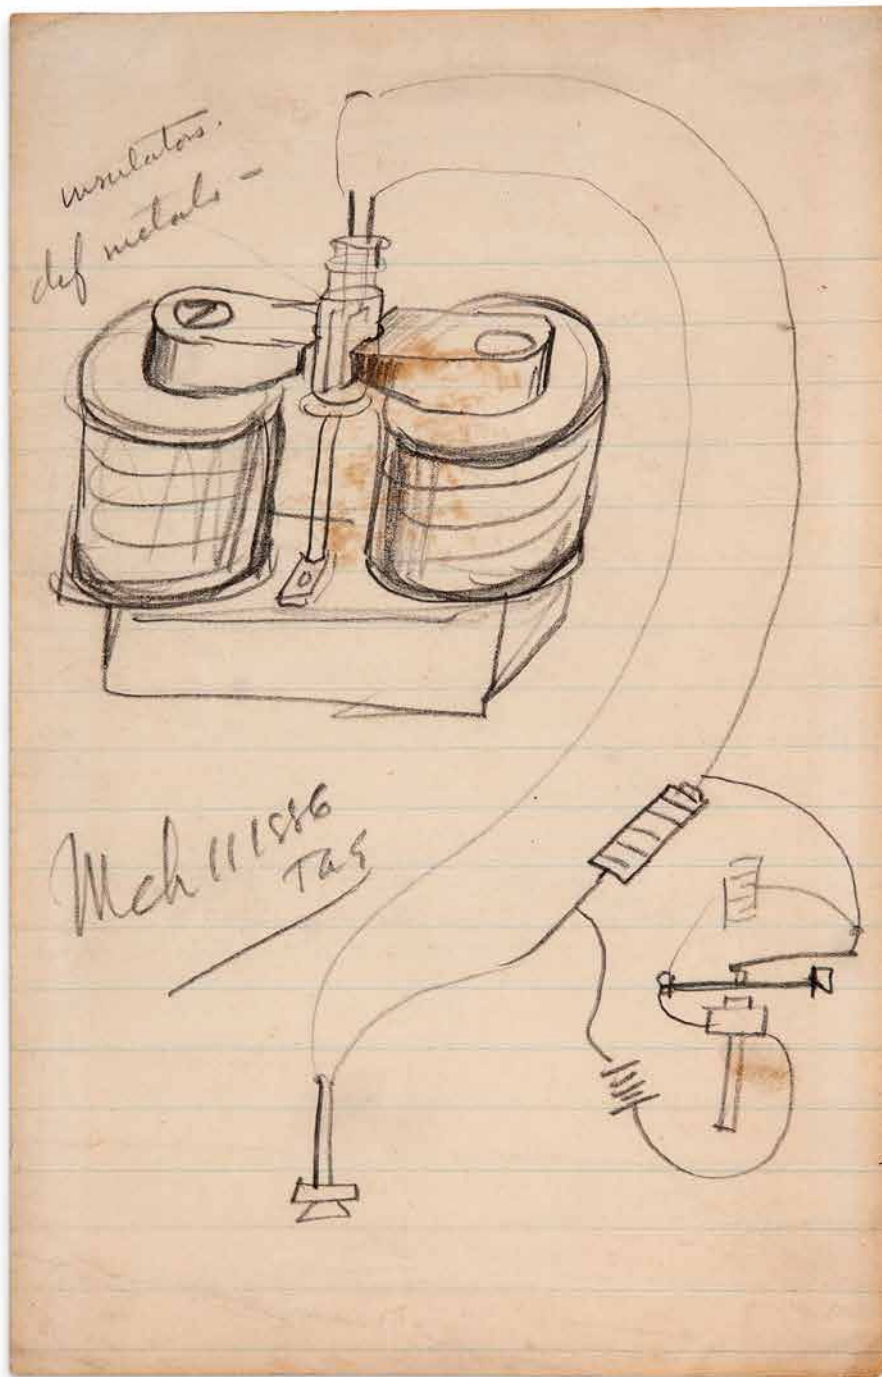 insulators.
def metals -
Mch 11 1886
TAE